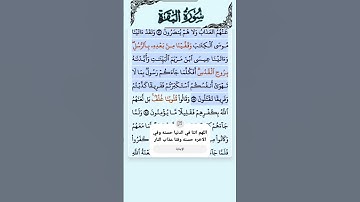 سُورَةُ الْبَقَرَةِ
عَنْهُمُ الْعَذَابُ وَلَا هُمْ يُنصَرُونَ وَلَقَدْ ءَاتَيْنَا
مُوسَى الْكِتَابَ وَقَفَّيْنَا مِنْ بَعْدِهِ بِالرُّسُلِ
وَءَاتَيْنَا عِيسَى ابْنَ مَرْيَمَ الْبَيِّنَاتِ وَأَيَّدْنَاهُ
بِرُوحِ الْقُدُسِ أَفَكُلَّمَا جَاءَكُمْ رَسُولٌ بِمَا لَا
تَهْوَى أَنْفُسُكُمُ اسْتَكْبَرْتُمْ فَفَرِيقًا كَذَّبْتُمْ
وَفَرِيقًا تَقْتُلُونَ وَقَالُوا قُلُوبُنَا غُلْفٌ بَلْ لَعَنَهُمُ
اللَّهُ بِكُفْرِهِمْ فَقَلِيلًا مَا يُؤْمِنُونَ وَلَمَّا
جَاءَهُمْ
مَعَهُمْ
وَكَانُوا مِنْ
كَفَرُوا
فَلَمَّا جَاءَ
اللهم اتنا في الدنيا حسنه وفي
الاخره حسنه وقنا عذاب النار